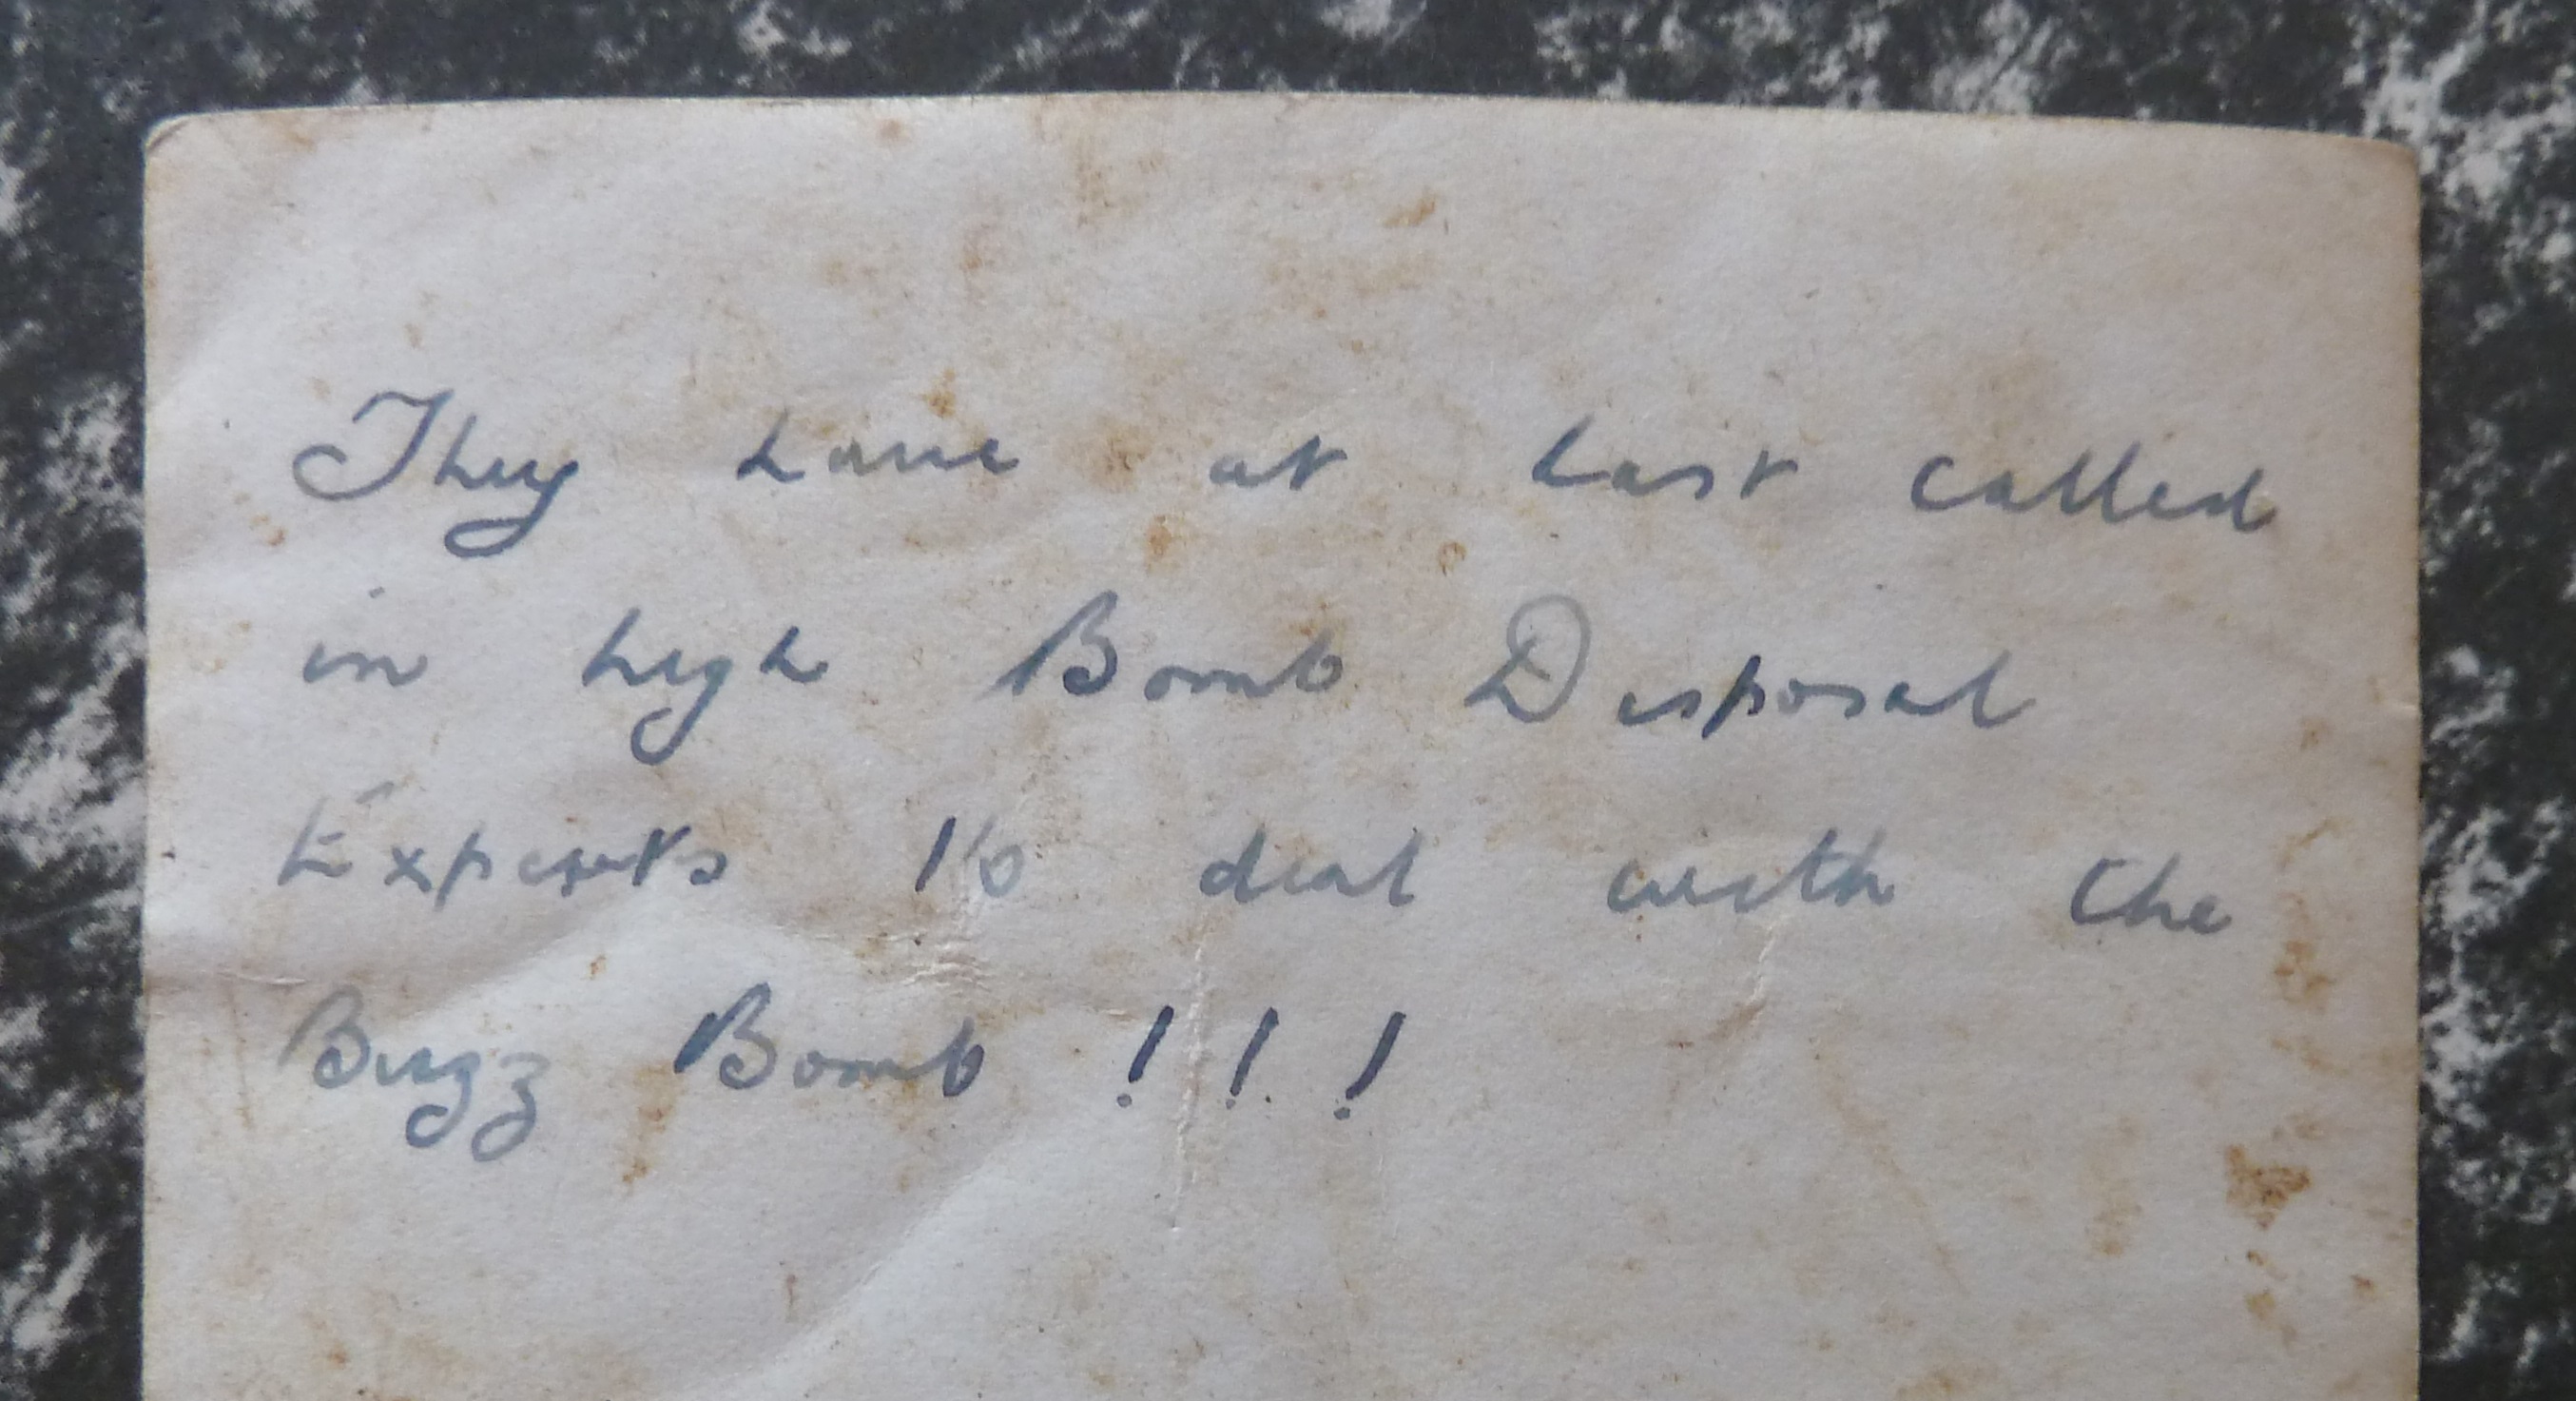 They have at last called
in high Bomb Disposal
Experts to deal with the
Buzz Bomb ! ! !